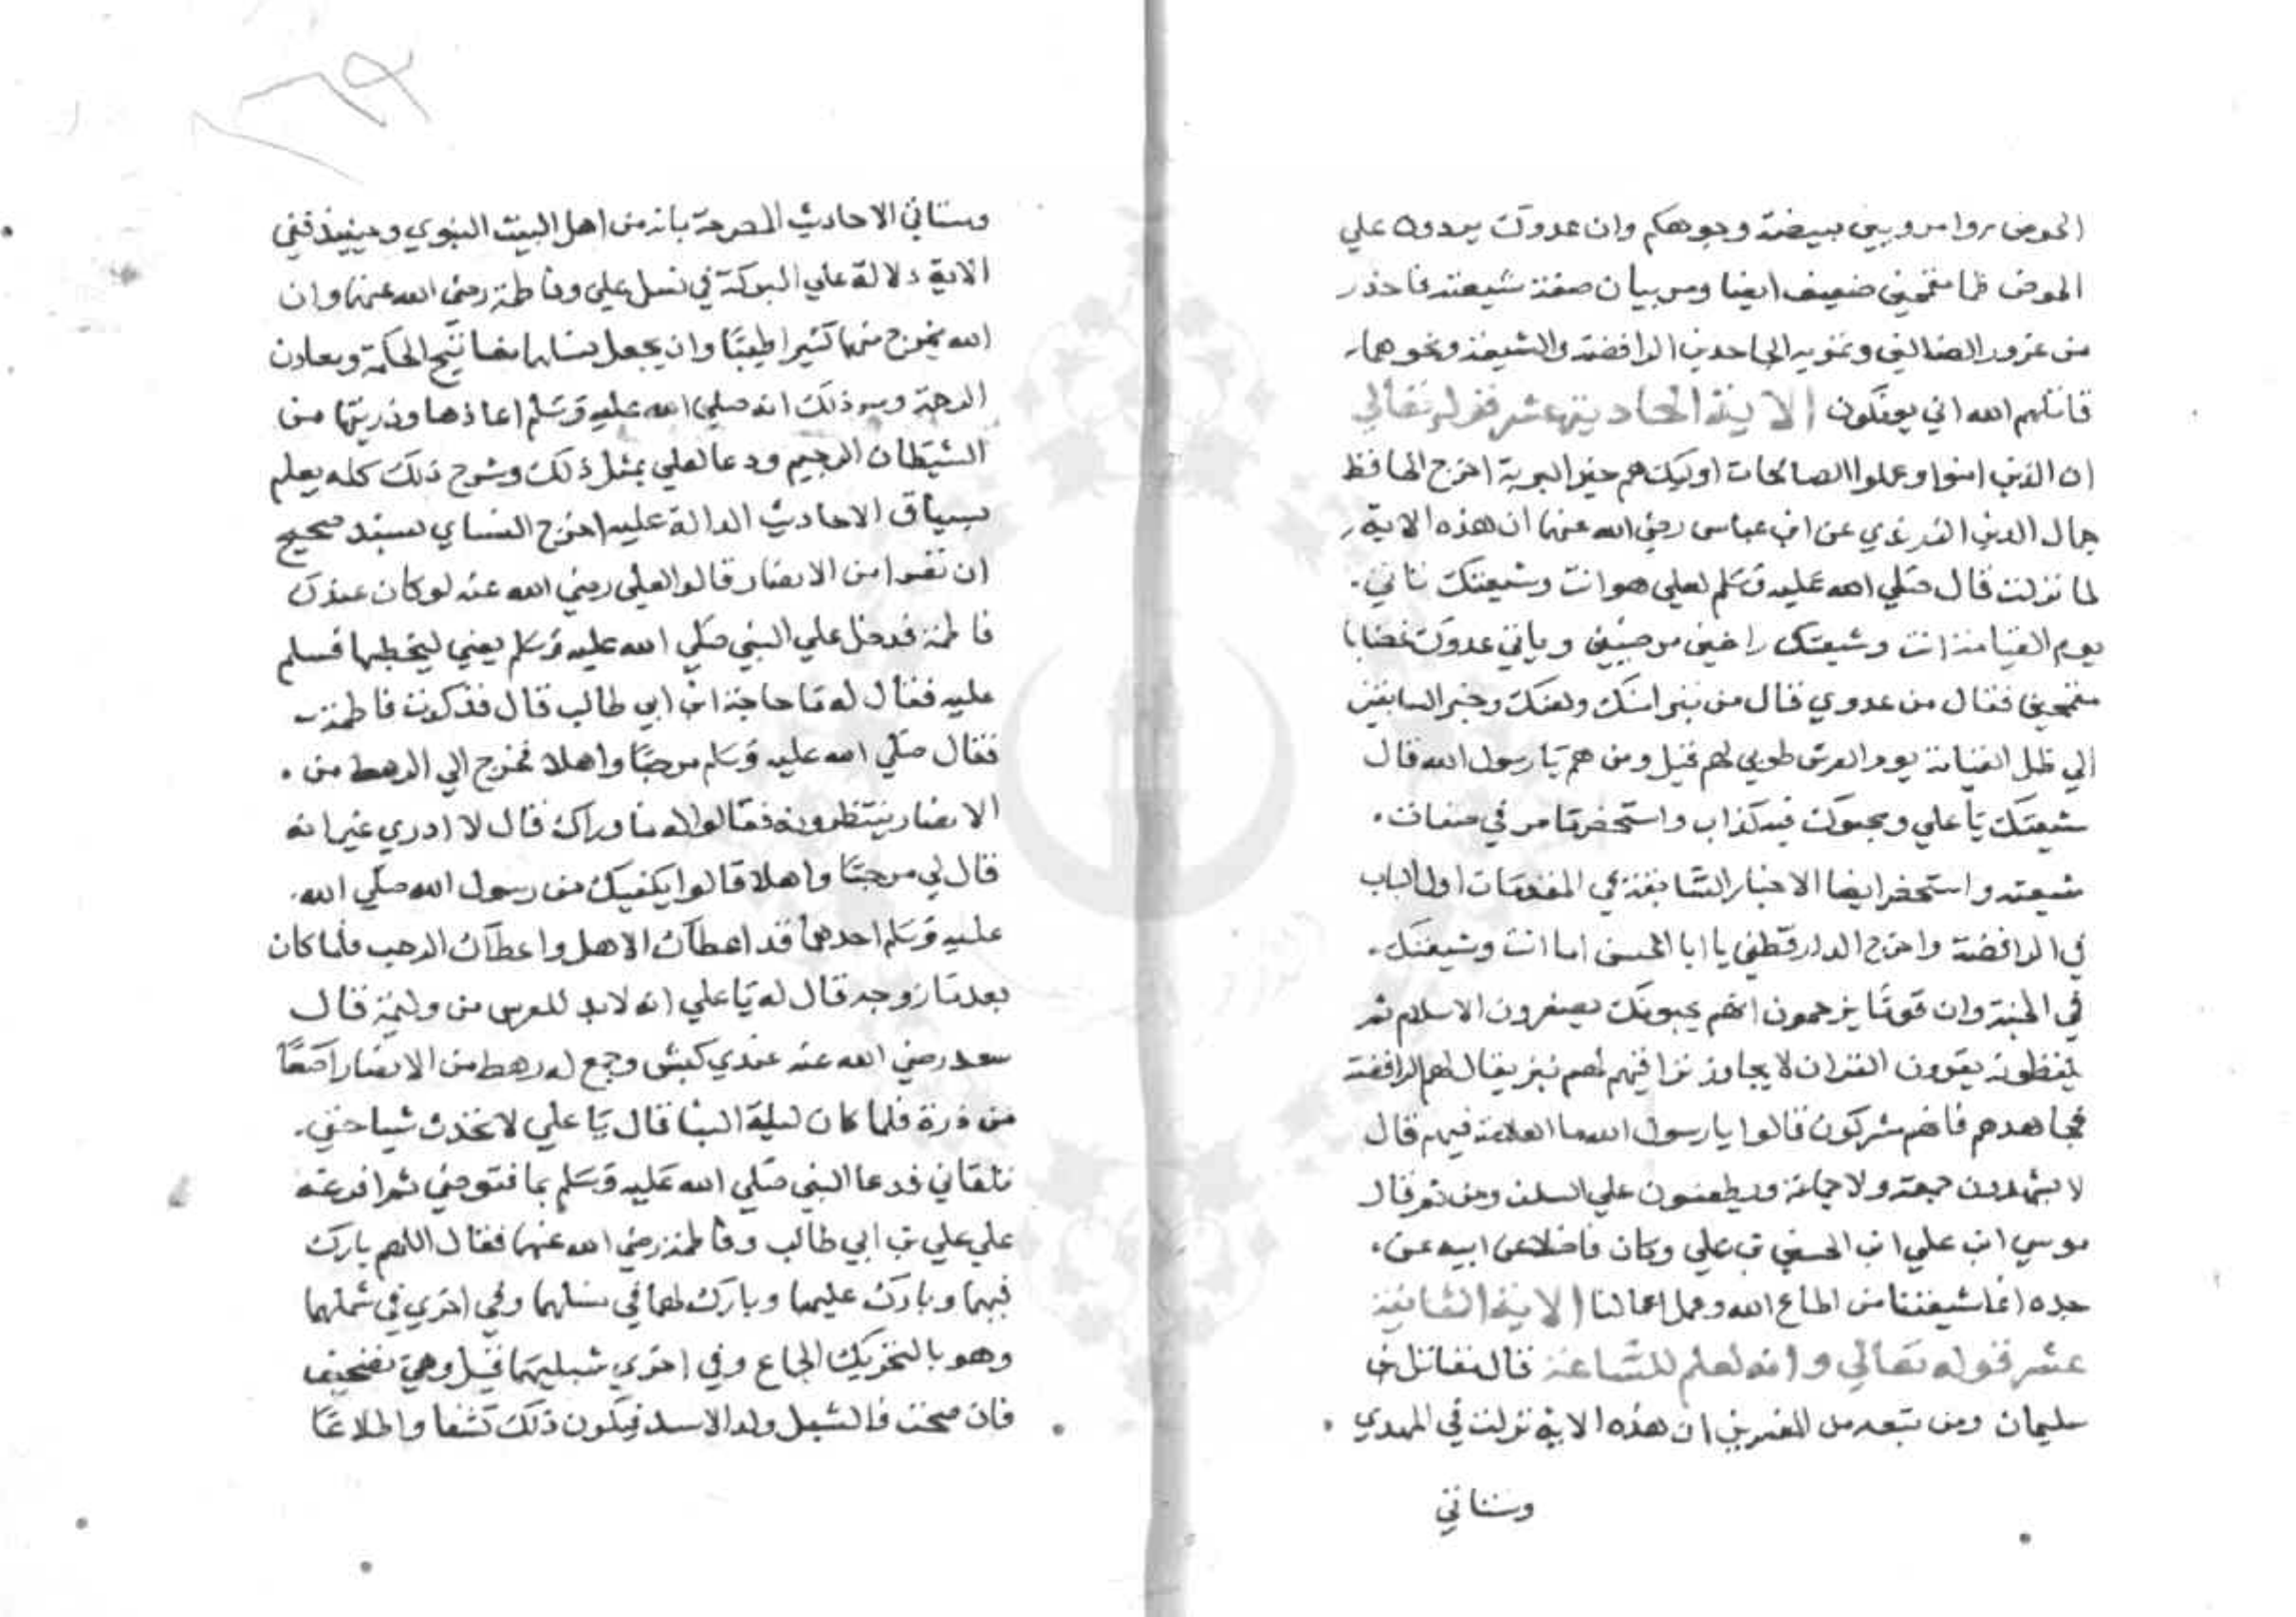 الحوض روا مرويين مبيضة وجوهكم وان عدوك يردون علي
الحوض ظما مقمحين ضعيف ايضا ومر بيان صفة شيعته فاحذر
من غرور الضالين وتمويه الجاحدين الرافضة والشيعة ونحوهما
قاتلهم الله اني يوفكون الاية الحادية عشر قوله تعالي
ان الذين امنوا وعملوا الصالحات اوليك هم خير البرية اخرج الحافظ
جمال الدين الذرندي عن ابن عباس رضي الله عنهما ان هذه الاية
لما نزلت قال صلي الله عليه وسلم لعلي هو انت وشيعتك تاتي
يوم القيامة انت وشيعتك راضين مرضيين وياتي عدوك غضابا
مقمحين فقال من عدوي قال من تبرا منك ولعنك وخبر السابقين
الي ظل العرش يوم القيامة طوبي لهم قيل ومن هم يا رسول الله قال
شيعتك يا علي ومحبوك فيه كذاب واستحضر ما مر في صفات
شيعته واستحضر ايضا الاخبار السابقة في المقدمات اول الباب
في الرافضة واخرج الدارقطني يا ابا الحسن اما انت وشيعتك
في الجنة وان قوما يزعمون انهم يحبونك يصغرون الاسلام ثم
يلفظونه يقرون القران لا يجاوز تراقيهم لهم نبز يقال لهم الرافضة
فجاهدهم فانهم مشركون قالوا يا رسول الله ما العلامة فيهم قال
لا يشهدون جمعة ولا جماعة ويطعنون علي السلف ومن ثم قال
موسي ابن علي ابن الحسين بن علي وكان فاضلا عن ابيه عن
جده انما شيعتنا من اطاع الله وعمل اعمالنا الاية الثانية
عشر قوله تعالي وانه لعلم للساعة قال مقاتل بن
سليمان ومن تبعه من المفسرين ان هذه الاية نزلت في المهدي
وستاتي
وستاتي الاحاديث المصرحة بانه من اهل البيت النبوي وحينيذ ففي
الاية دلالة علي البركة في نسل علي وفاطمة رضي الله عنهما وان
الله يخرج منهما كثيرا طيبا وان يجعل نسلهما مفاتيح الحكمة ومعادن
الرحمة وسر ذلك انه صلي الله عليه وسلم اعاذها وذريتها من
الشيطان الرجيم ودعا لعلي بمثل ذلك وشرح ذلك كله يعلم
بسياق الاحاديث الدالة عليه اخرج النساي بسند صحيح
ان نفرا من الانصار قالوا لعلي رضي الله عنه لو كان عندك
فاطمة فدخل علي النبي صلي الله عليه وسلم يعني ليخطبها فسلم
عليه فقال له ما حاجة ابن ابي طالب قال فذكرت فاطمة
فقال صلي الله عليه وسلم مرحبا واهلا فخرج الي الرهط من
الانصار ينتظرونه فقالوا له ما وراك قال لا ادري غير انه
قال لي مرحبا واهلا قالوا يكفيك من رسول الله صلي الله
عليه وسلم احدهما قد اعطاك الاهل واعطاك الرحب فلما كان
بعد ما زوجه قال له يا علي انه لا بد للعرس من وليمة قال
سعد رضي الله عنه عندي كبش وجمع له رهط من الانصار اصعا
من ذرة فلما كان ليلة البنا قال يا علي لا تحدث شيا حتي
تلقاني فدعا النبي صلي الله عليه وسلم بما فتوضي ثم افرغه
علي علي بن ابي طالب وفاطمة رضي الله عنهما فقال اللهم بارك
فيهما وبارك عليهما وبارك لهما في نسلهما وفي اخري في شملهما
وهو بالتحريك الجماع وفي اخري شبليهما قيل وهي تصحيف
فان صحت فالشبل ولد الاسد فيكون ذلك كشفا واطلاعا